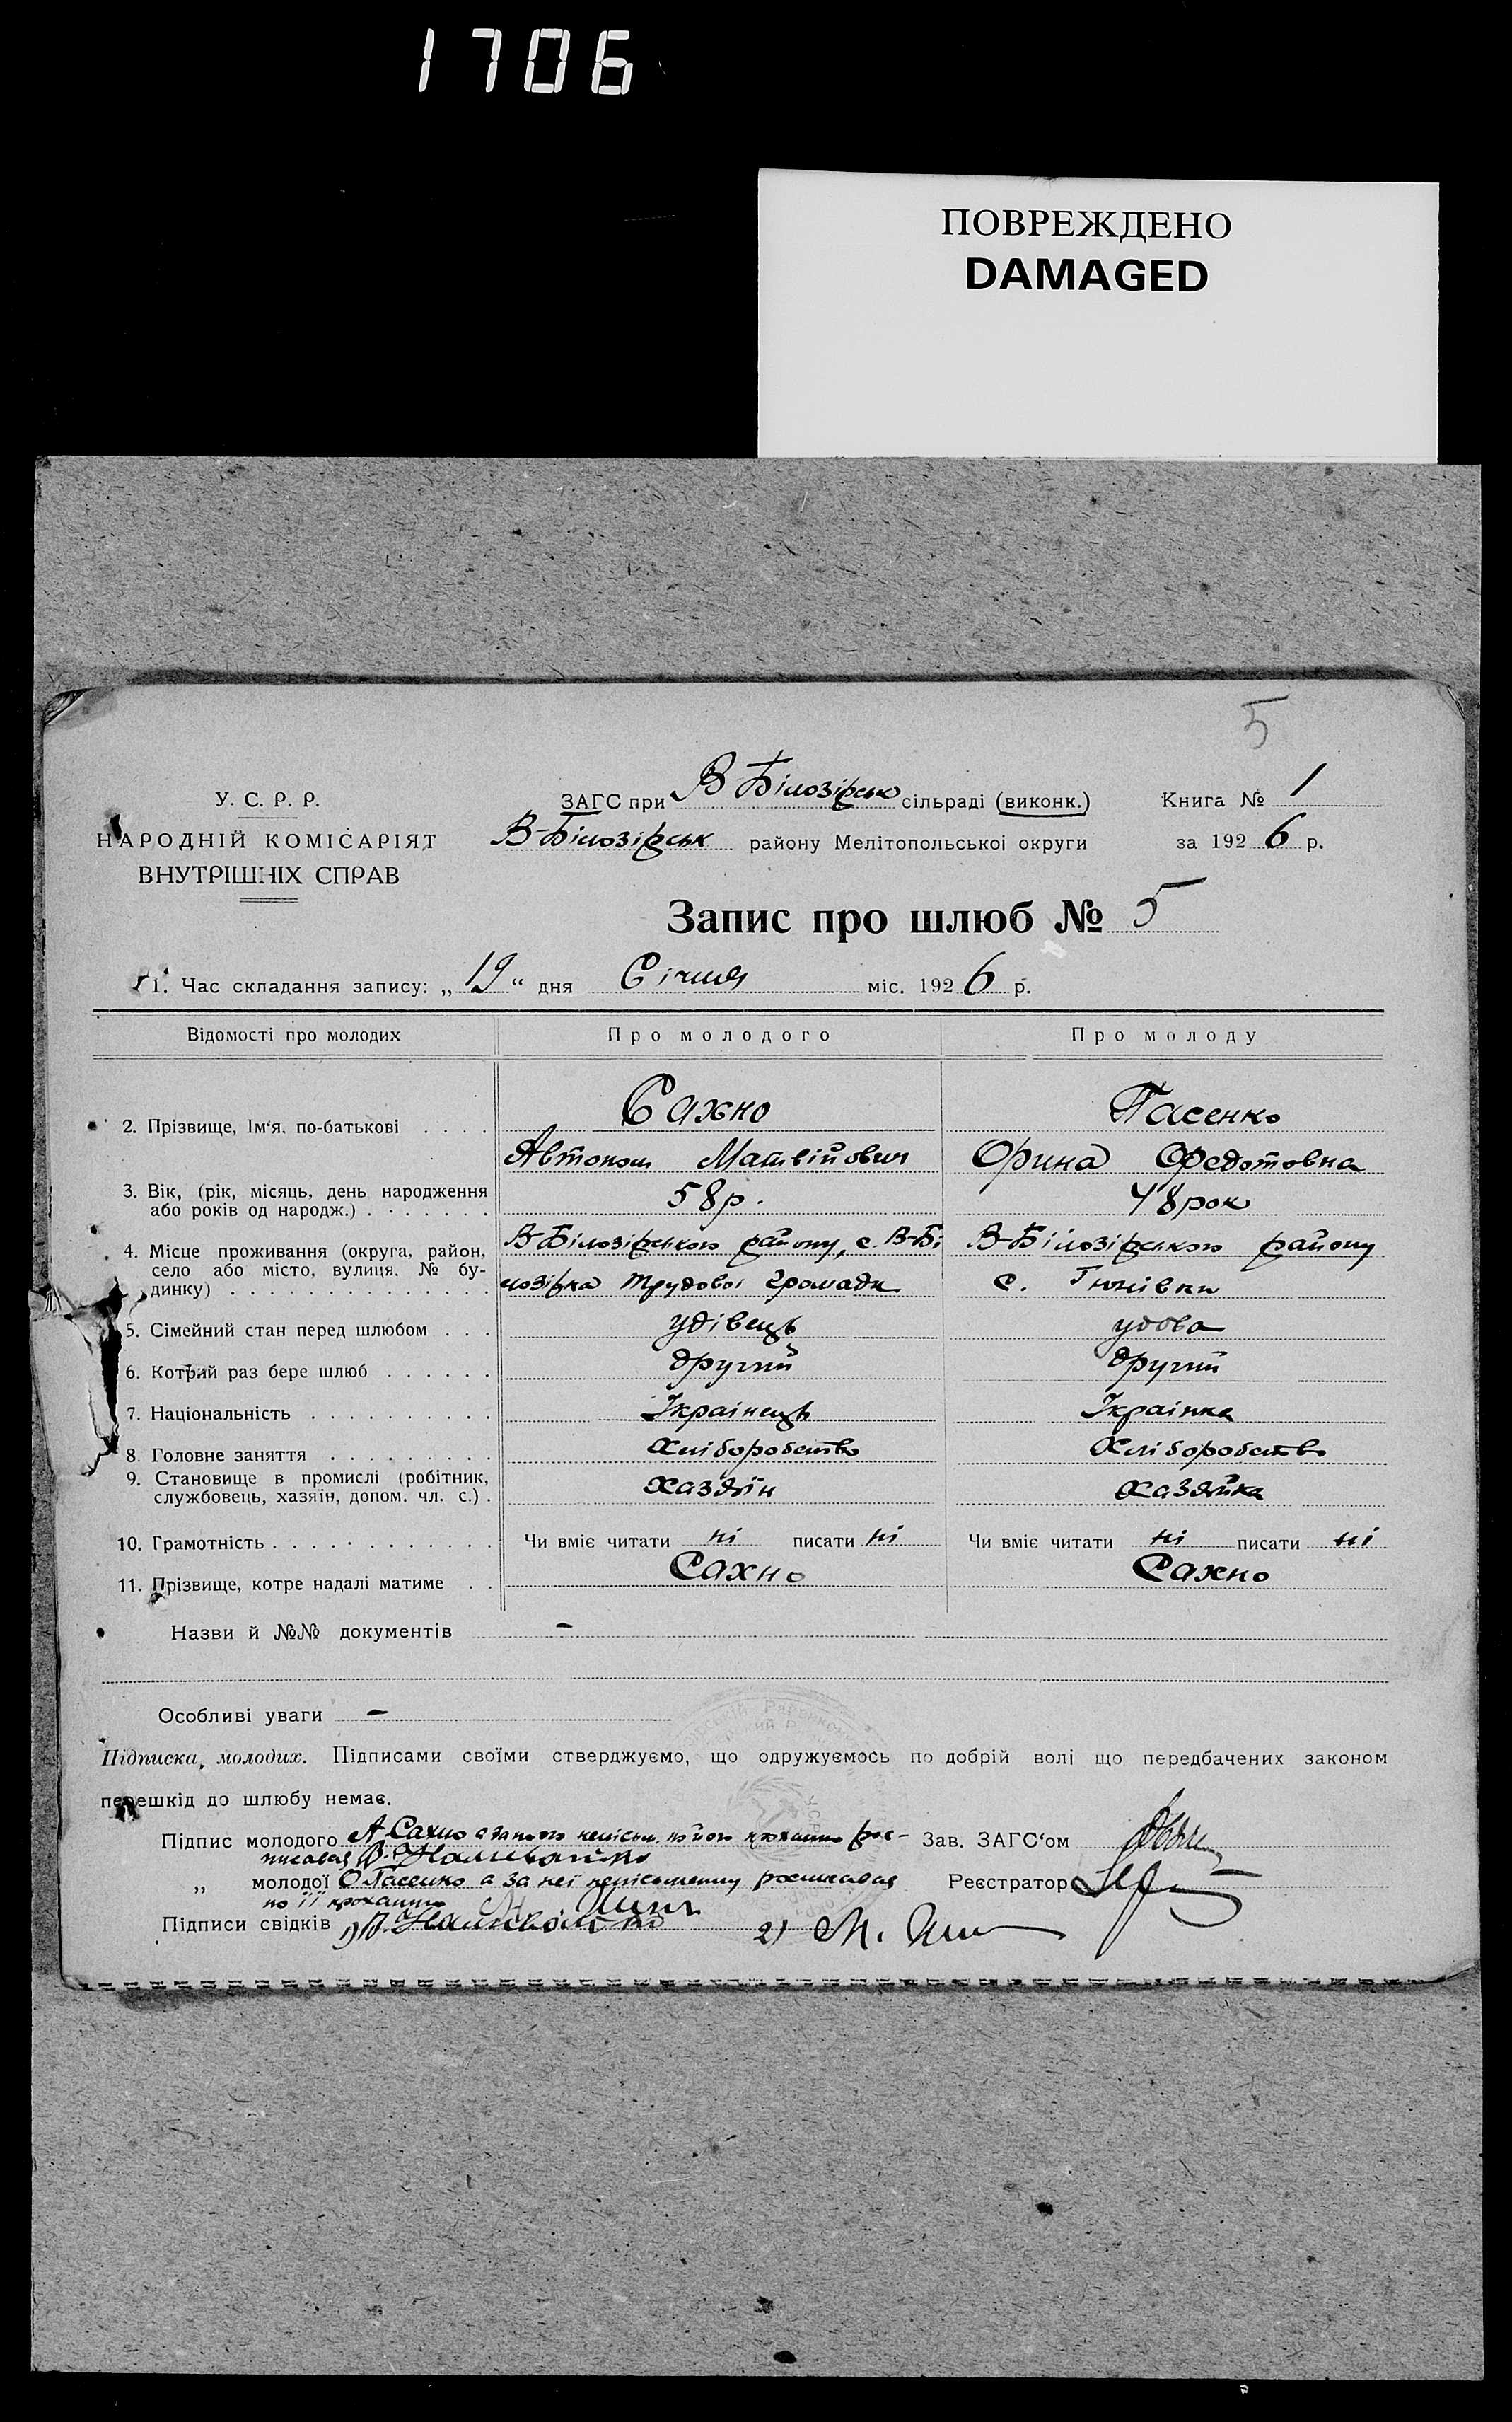 1706
ПОВРЕЖДЕНО
DAMAGED
5
У. С. Р. Р.
НАРОДНІЙ КОМІСАРІЯТ
ВНУТРІШНІХ СПРАВ
ЗАГС при В Білозірсько сільраді (виконк.)
Книга № 1
В-Білозірськ району Мелітопольської округи
за 1926 р.
Запис про шлюб № 5
1. Час складання запису: „19“ дня Січня міс. 1926 р.
Відомості про молодих
Про молодого
Про молоду
2. Прізвище, Ім'я, по-батькові . . . .
Сахно
Пасенко
Автоном Матвійович
Орина Федотовна
3. Вік, (рік, місяць, день народження
або років од народж.) . . . . . . .
58 р.
48 рок
4. Місце проживання (округа, район,
село або місто, вулиця, № бу-
динку) . . . . . . . . . . . . . .
В-Білозірського району, с. В-Бі
лозірка Трудової громади
В-Білозірського району
с. Гюнівки
5. Сімейний стан перед шлюбом . . .
удівець
удова
6. Котрий раз бере шлюб . . . . . .
другий
другий
7. Національність . . . . . . . . . .
Українець
Українка
8. Головне заняття . . . . . . . . .
Хліборобство
Хліборобство
9. Становище в промислі (робітник,
службовець, хазяїн, допом. чл. с.) .
хазяїн
хазяйка
10. Грамотність . . . . . . . . . . . .
Чи вміє читати ні писати ні
Чи вміє читати ні писати ні
11. Прізвище, котре надалі матиме . .
Сахно
Сахно
Назви й №№ документів –
Особливі уваги –
Підписка молодих. Підписами своїми стверджуємо, що одружуємось по добрій волі що передбачених законом
перешкід до шлюбу немає.
Підпис молодого А Сахно а за його неписьм. по його проханню рос-
писався В. Наливайко
Зав. ЗАГС'ом
„ молодої О Пасенко а за неї неписьменну росписався
по її проханню
Реєстратор
Підписи свідків 1) В. Наливайко 2) М.